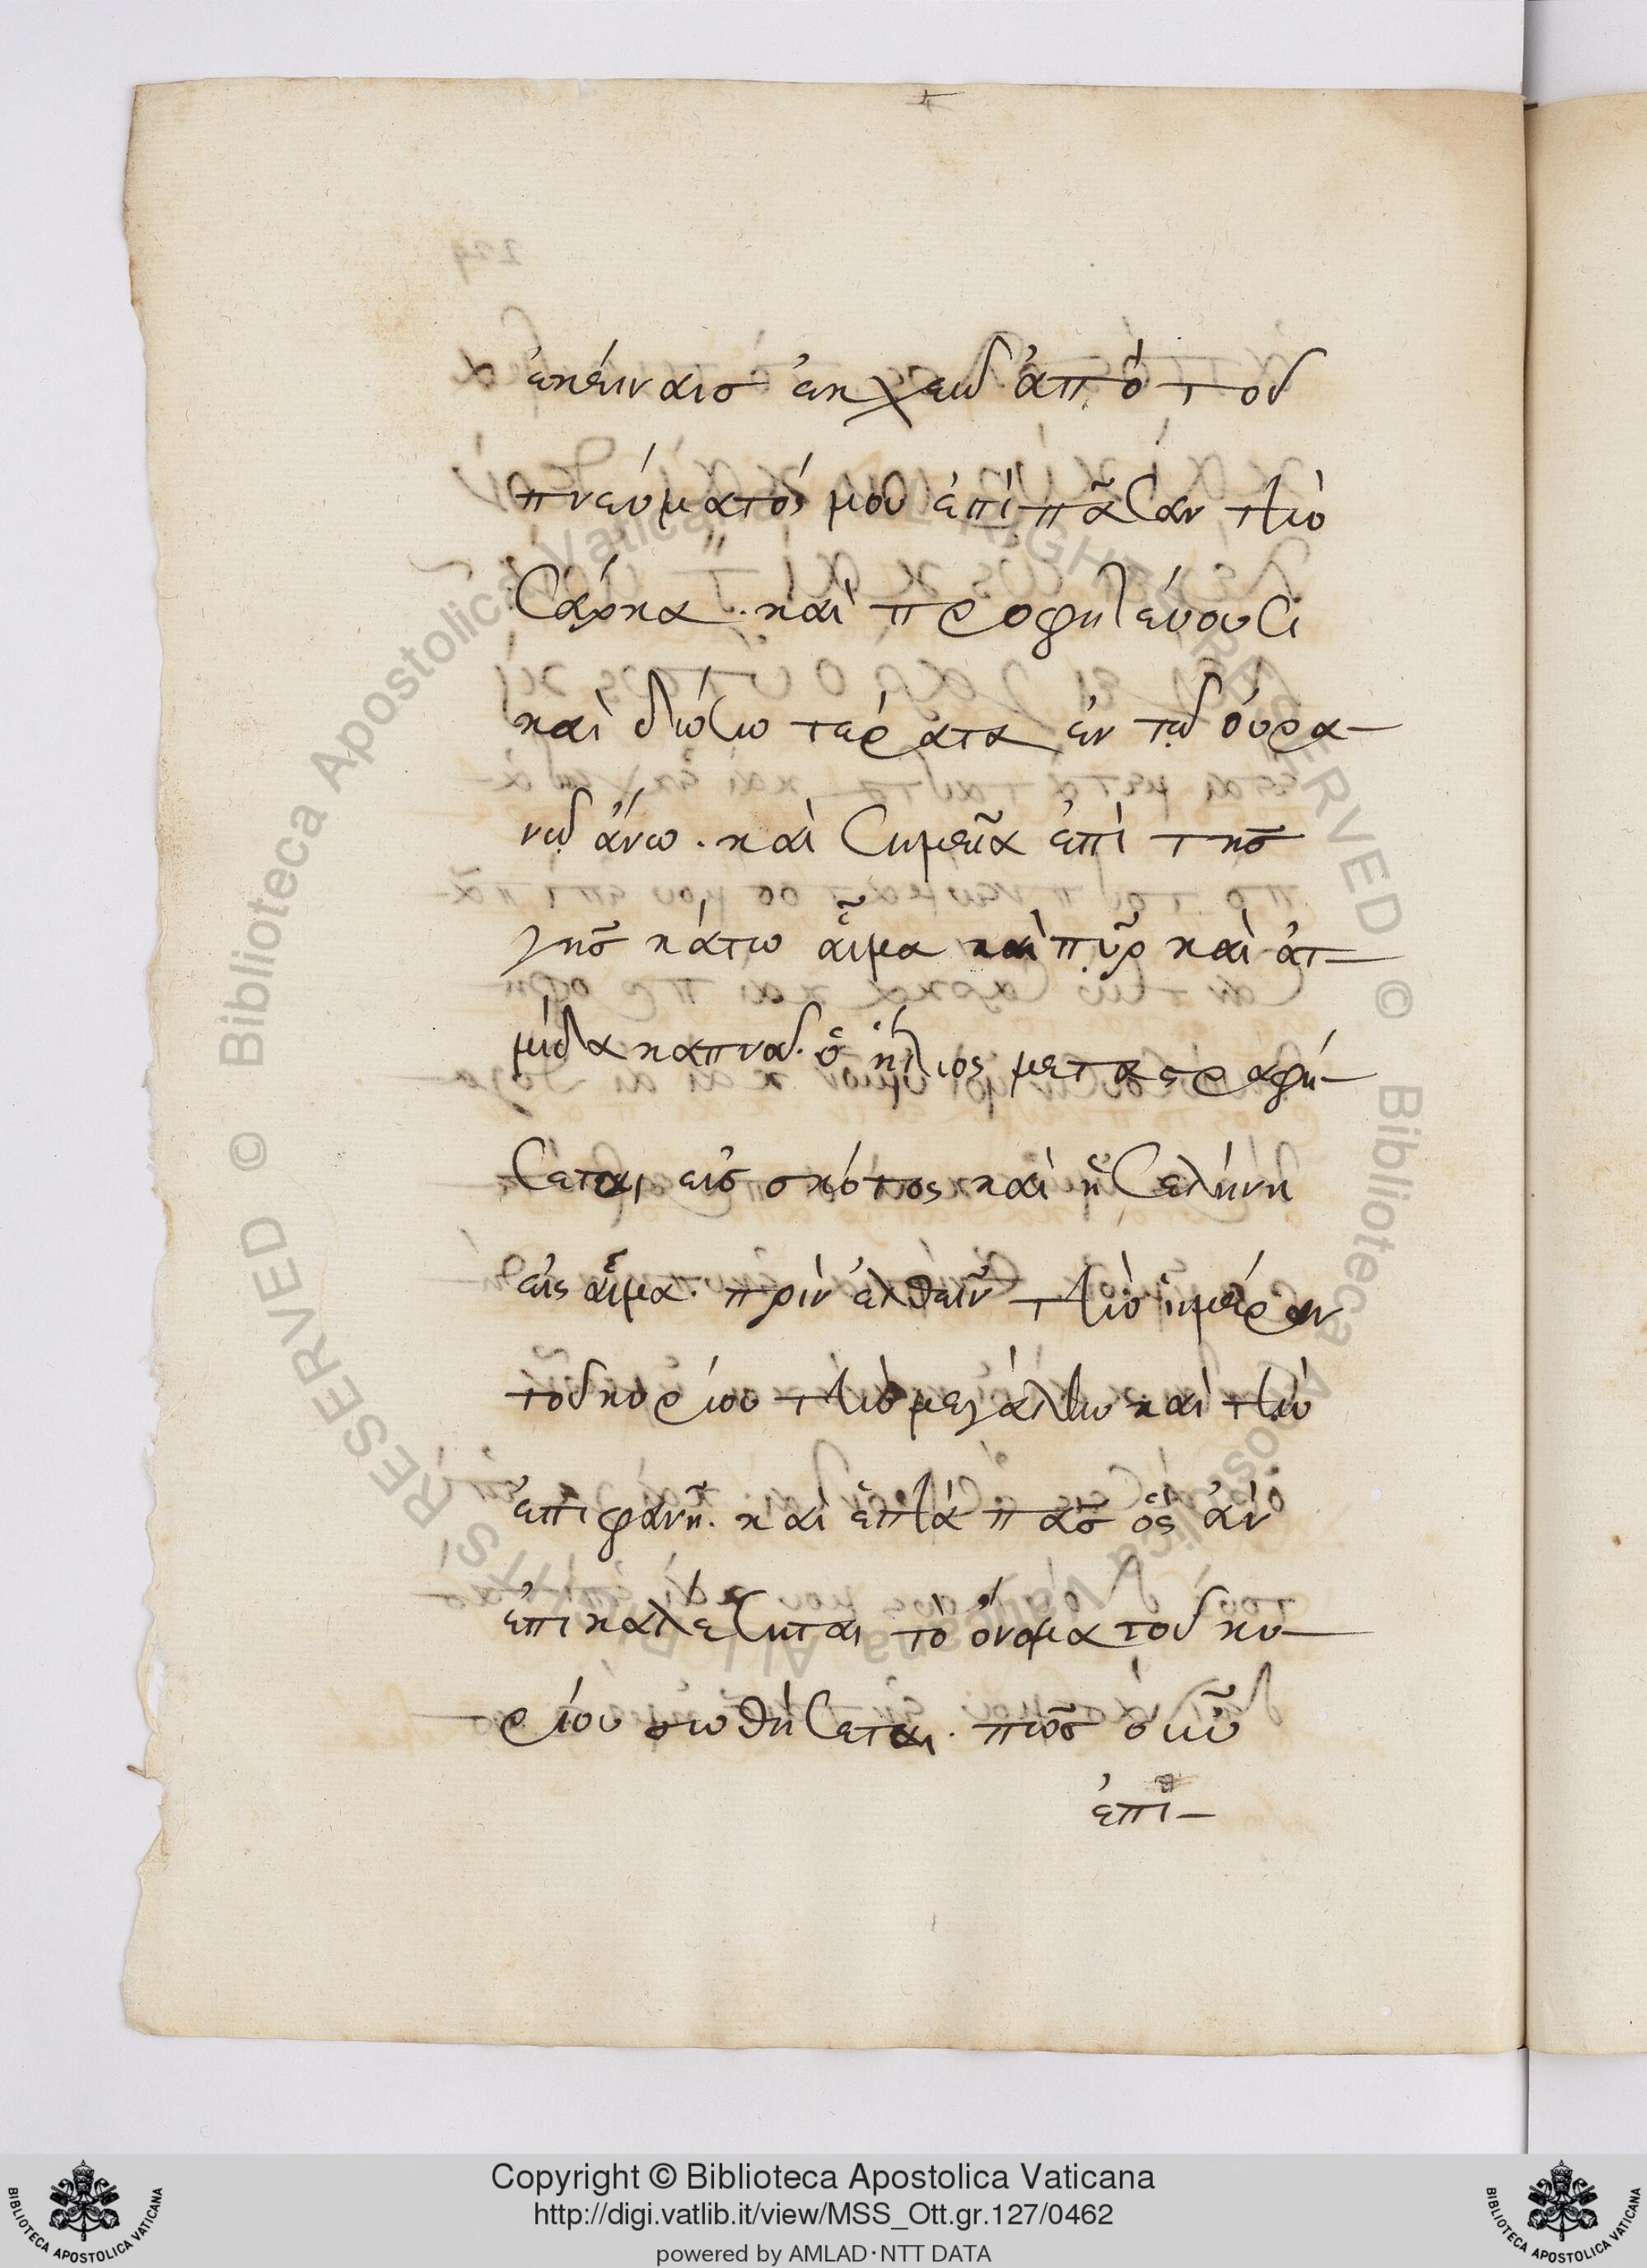 ἐκείναισ ἐκχεῶ ἀπὸ τοῦ
πνεύματός μου ἐπὶ πᾶσαν τὴν
σάρκα. καὶ προφητεύουσι
καὶ δώσω τέρατα ἐν τῷ οὐρα-
νῷ ἄνω. καὶ σημεῖα ἐπὶ τῆσ
γῆσ κάτω αἷμα καὶ πῦρ καὶ ἀτ-
μίδα καπνοῦ. ὁ ἥλιος μεταστραφή-
σεται εἰσ σκότος καὶ ἡ σελήνη
εἰς αἷμα. πρὶν ἐλθεῖν τὴν ἡμέραν
τοῦ κυρίου τὴν μεγάλην καὶ τὴν
ἐπιφανῆ. καὶ πᾶσ ὃς ἂν
ἐπικαλέσηται τὸ ὄνομα τοῦ κυ-
ρίου σωθήσεται. πῶσ οὖν
ἐπὶ-
Copyright © Biblioteca Apostolica Vaticana
http://digi.vatlib.it/view/MSS_Ott.gr.127/0462
powered by AMLAD·NTT DATA
BIBLIOTECA APOSTOLICA VATICANA
BIBLIOTECA APOSTOLICA VATICANA